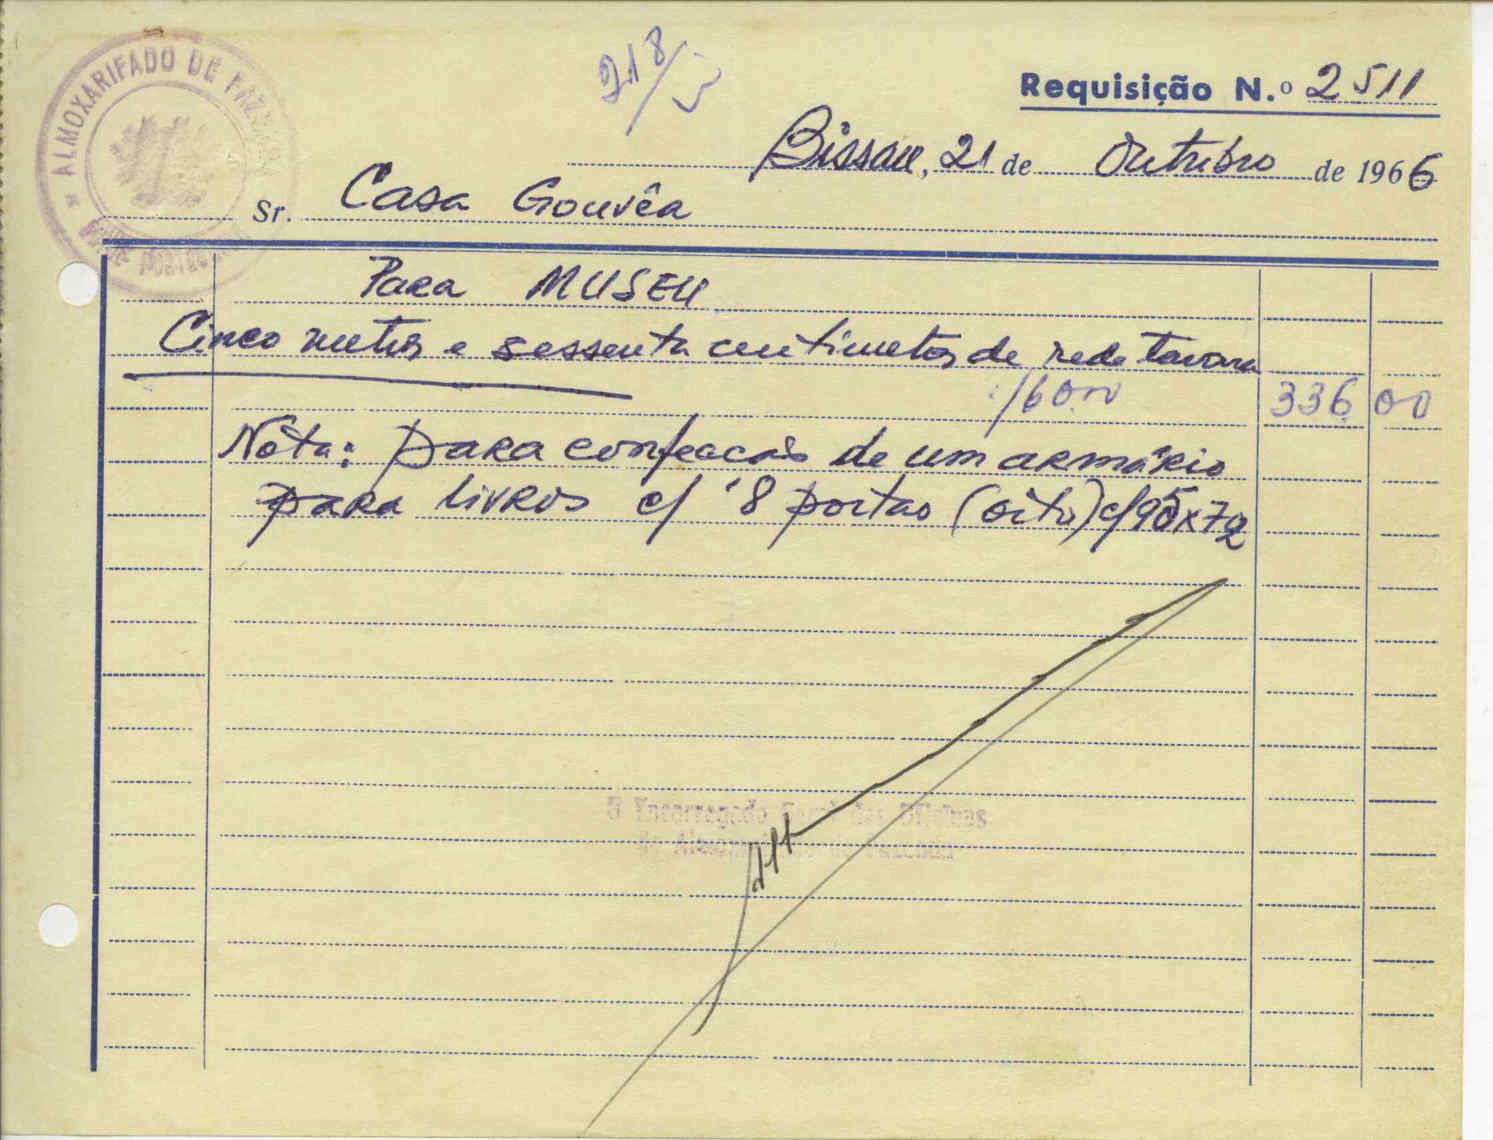 ALMOXARIFADO DE FAZENDA
218/5
Requisição N.º 2511
Bissau, 21 de Outubro de 1966
Sr. Casa Gouvêa
Para MUSEU
Cinco metros e sessenta centimetros de rede
336,00
Nota: para confecção de um armário
para livros c/ 8 portas (oito) c/95x72
O Encarregado Geral das Oficinas
do Almoxarifado de Fazenda